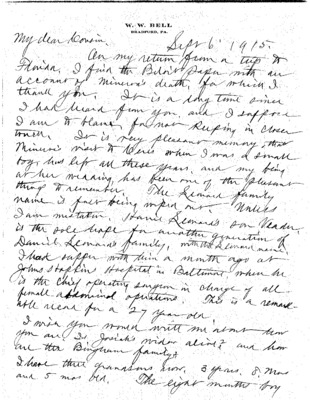 W. W. BELL
BRADFORD, PA.
Sept 6 1915.
My dear Cousin.
On my return from a trip to
Florida, I find the Beloit Paper with an
account of Minerva's death, for which I
thank you. It is a long time since
I had heard from you, and I suppose
I am to blame, for not keeping in closer
touch. It is very pleasant memory, that
Minerva's visit to Ceres when I was a small
boy, has left all these years, and my being
at her wedding, has been one of the pleasant
things to remember. The Leonard family
name is fast being wiped out. Unless
I am mistaken, Harrie Leonard's son
is the sole hope for another generation of
Daniel Leonard's family, with the Leonard name.
I had supper with him a month ago at
Johns Hopkins Hospital in Baltimore, where he
is the chief operating surgeon in charge of all
female abdominal operations. This is a remark-
able record for a 27 year old.
I wish you would write me about how
you are. Is Josiah's widow alive? and how
are the Bingham family?
I have three grandsons now. 3 years. 8 mos
and 5 mos old. The eight months boy